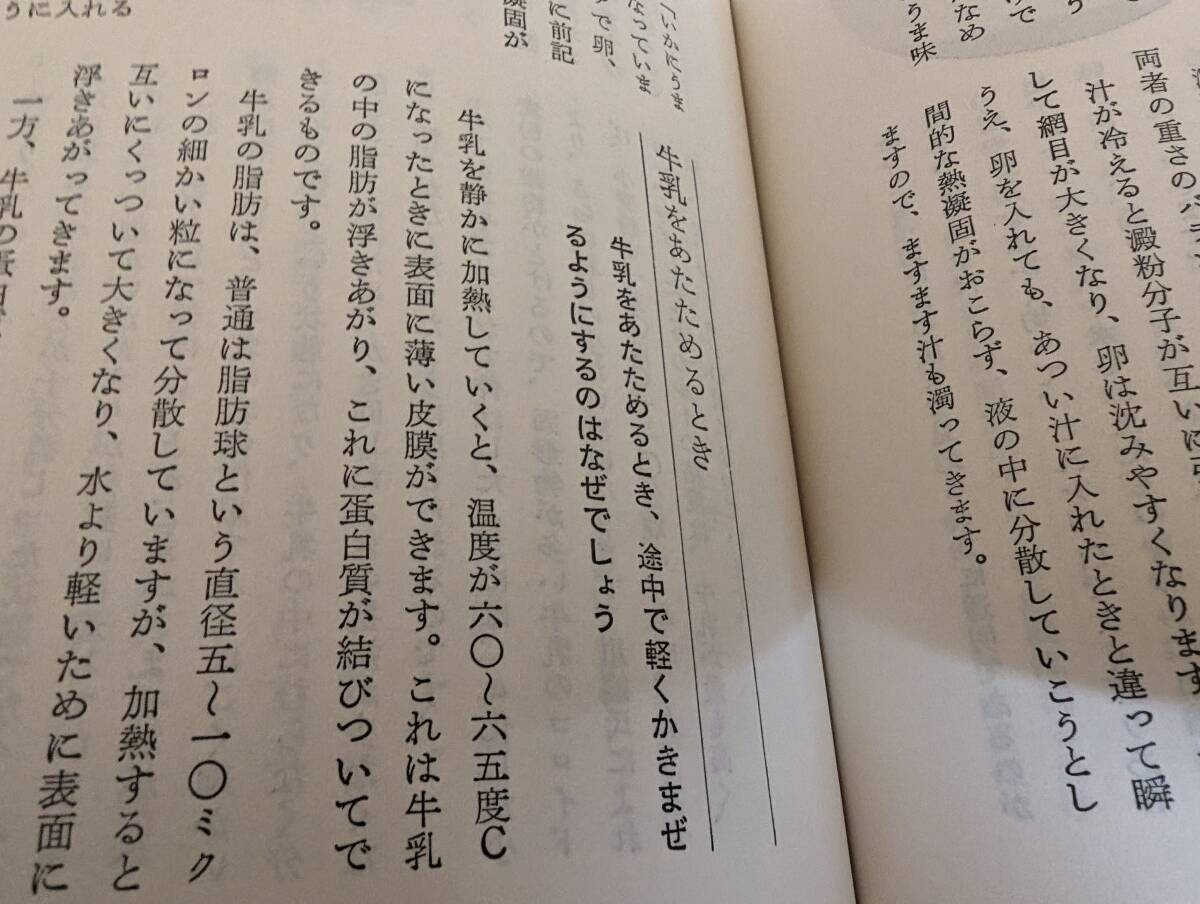 うま味
両者の重さのバラ
汁が冷えると澱粉分子が互いに引
して網目が大きくなり、卵は沈みやすくなります
うえ、卵を入れても、あつい汁に入れたときと違って瞬
間的な熱凝固がおこらず、液の中に分散していこうとし
ますので、ますます汁も濁ってきます。
「いかにうま
なっていま
で卵、
に前記
凝固が
うに入れる
牛乳をあたためるとき
牛乳をあたためるとき、途中で軽くかきまぜ
るようにするのはなぜでしょう
牛乳を静かに加熱していくと、温度が六〇〜六五度C
になったときに表面に薄い皮膜ができます。これは牛乳
の中の脂肪が浮きあがり、これに蛋白質が結びついてで
きるものです。
牛乳の脂肪は、普通は脂肪球という直径五〜一〇ミク
ロンの細かい粒になって分散していますが、加熱すると
互いにくっついて大きくなり、水より軽いために表面に
浮きあがってきます。
一方、牛乳の蛋白